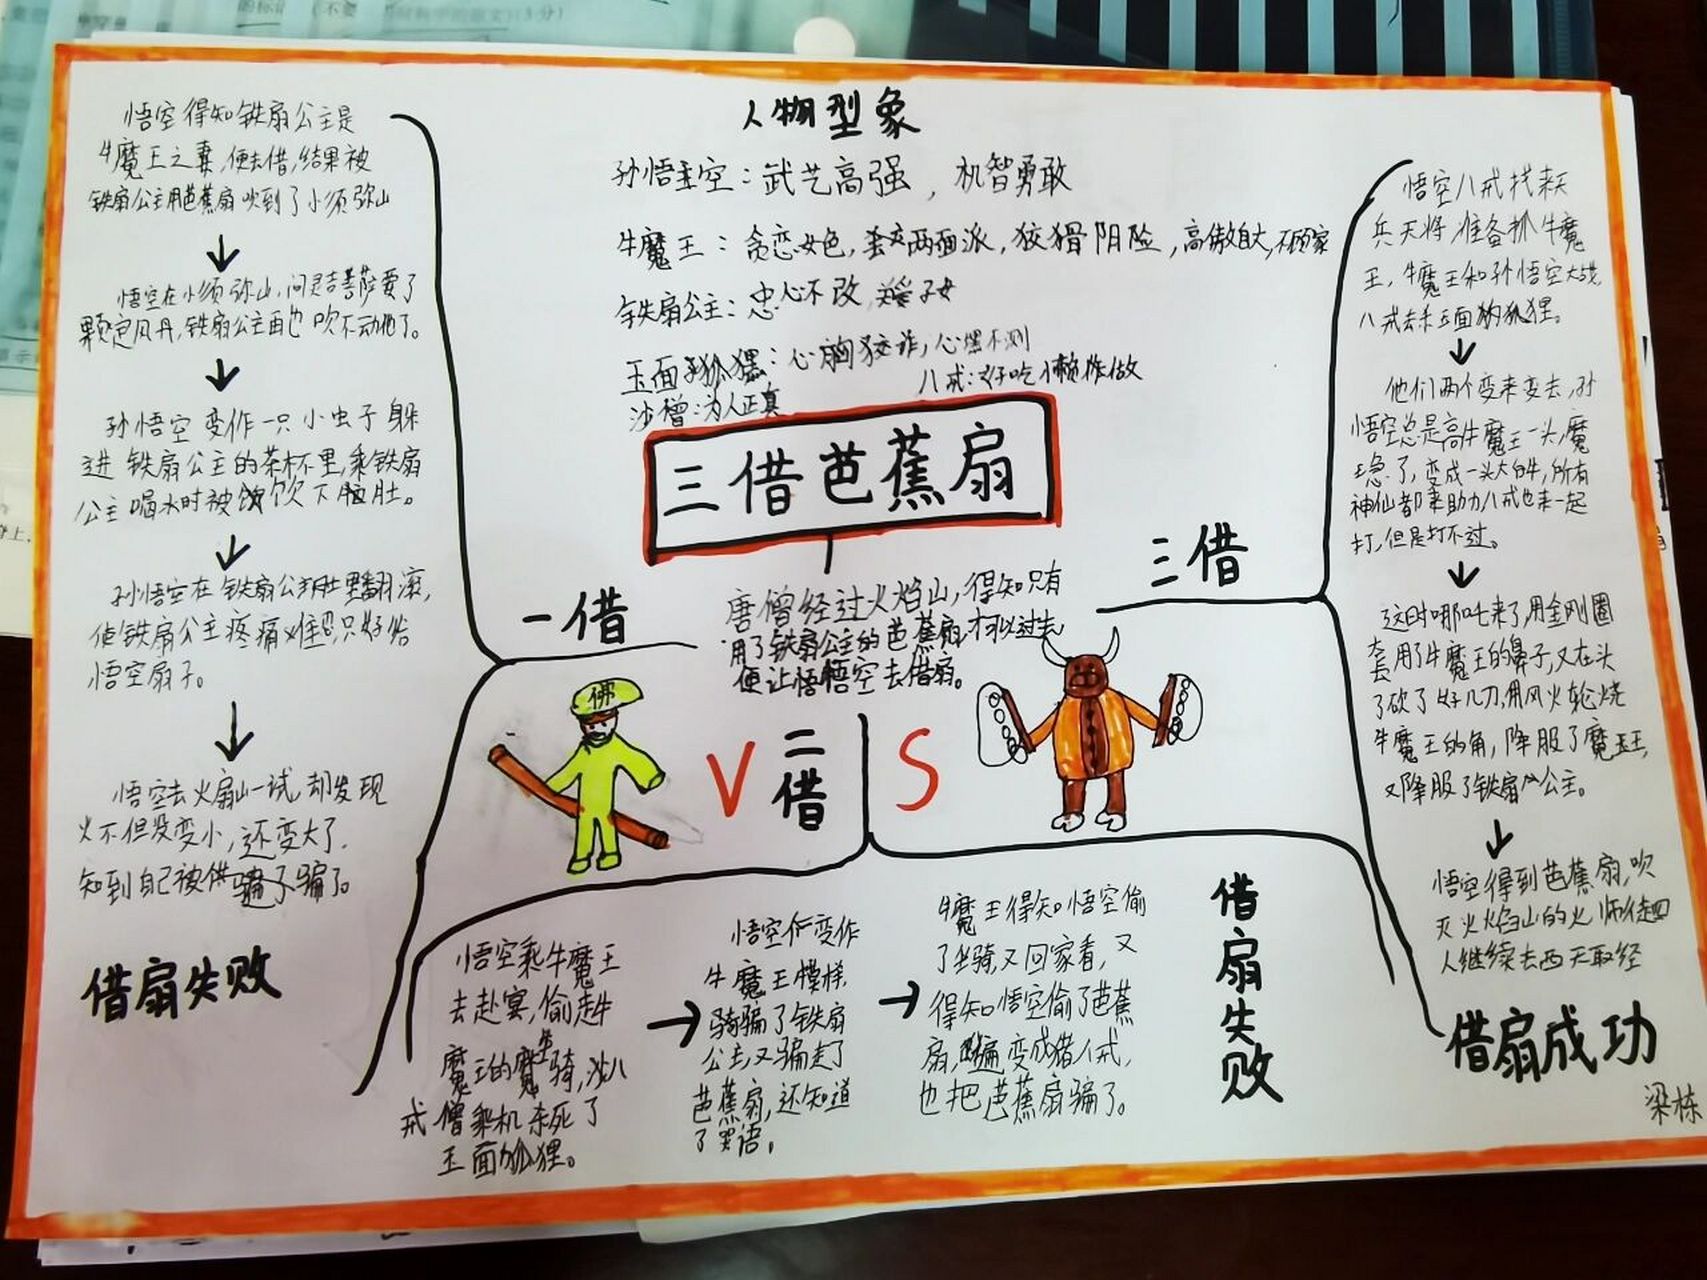 人物型象
孙悟空：武艺高强，机智勇敢
牛魔王：贪恋女色，两面派，狡猾阴险，高傲自大，不顾家
铁扇公主：忠心不改，关爱子女
玉面狐狸：心胸狡诈，心怀不测
八戒：好吃懒作做
沙僧：为人正真
三借芭蕉扇
唐僧经过火焰山，得知只有
用了铁扇公主的芭蕉扇才可以过去
便让悟悟空去借扇。
一借
悟空得知铁扇公主是
牛魔王之妻，便去借，结果被
铁扇公主用芭蕉扇吹到了小须弥山
↓
悟空在小须弥山，问灵吉菩萨要了
颗定风丹，铁扇公主再也吹不动他了。
↓
孙悟空变作一只小虫子躲
进铁扇公主的茶杯里，乘铁扇
公主喝水时被饮下肚。
↓
孙悟空在铁扇公主肚里翻滚，
使铁扇公主疼痛难忍只好给
悟空扇子。
↓
悟空去火扇山一试，却发现
火不但没变小，还变大了.
知到自己被骗了。
借扇失败
佛
V
二借
S
悟空乘牛魔王
去赴宴，偷走牛
魔王的坐骑，沙八
戒僧乘机杀死了
玉面狐狸。
→
悟空变作
牛魔王模样，
骗了铁扇
公主，又骗走了
芭蕉扇，还知道
了咒语。
→
牛魔王得知悟空偷
了坐骑又回家看，又
得知悟空偷了芭蕉
扇，变成猪八戒，
也把芭蕉扇骗了。
借扇失败
三借
悟空八戒找来天
兵天将，准备抓牛魔
王，牛魔王和孙悟空大战，
八戒去杀玉面狐狸。
↓
他们两个变来变去，孙
悟空总是高牛魔王一头，魔
王急了，变成一头大白牛，所有
神仙都来助力八戒也来一起
打，但是打不过。
↓
这时哪吒来了，用金刚圈
套用了牛魔王的鼻子，又在头
了砍了好几刀，用风火轮烧
牛魔王的角，降服了魔王，
又降服了铁扇公主。
↓
悟空得到芭蕉扇，吹
灭火焰山的火师徒四
人继续去西天取经
借扇成功
梁栋